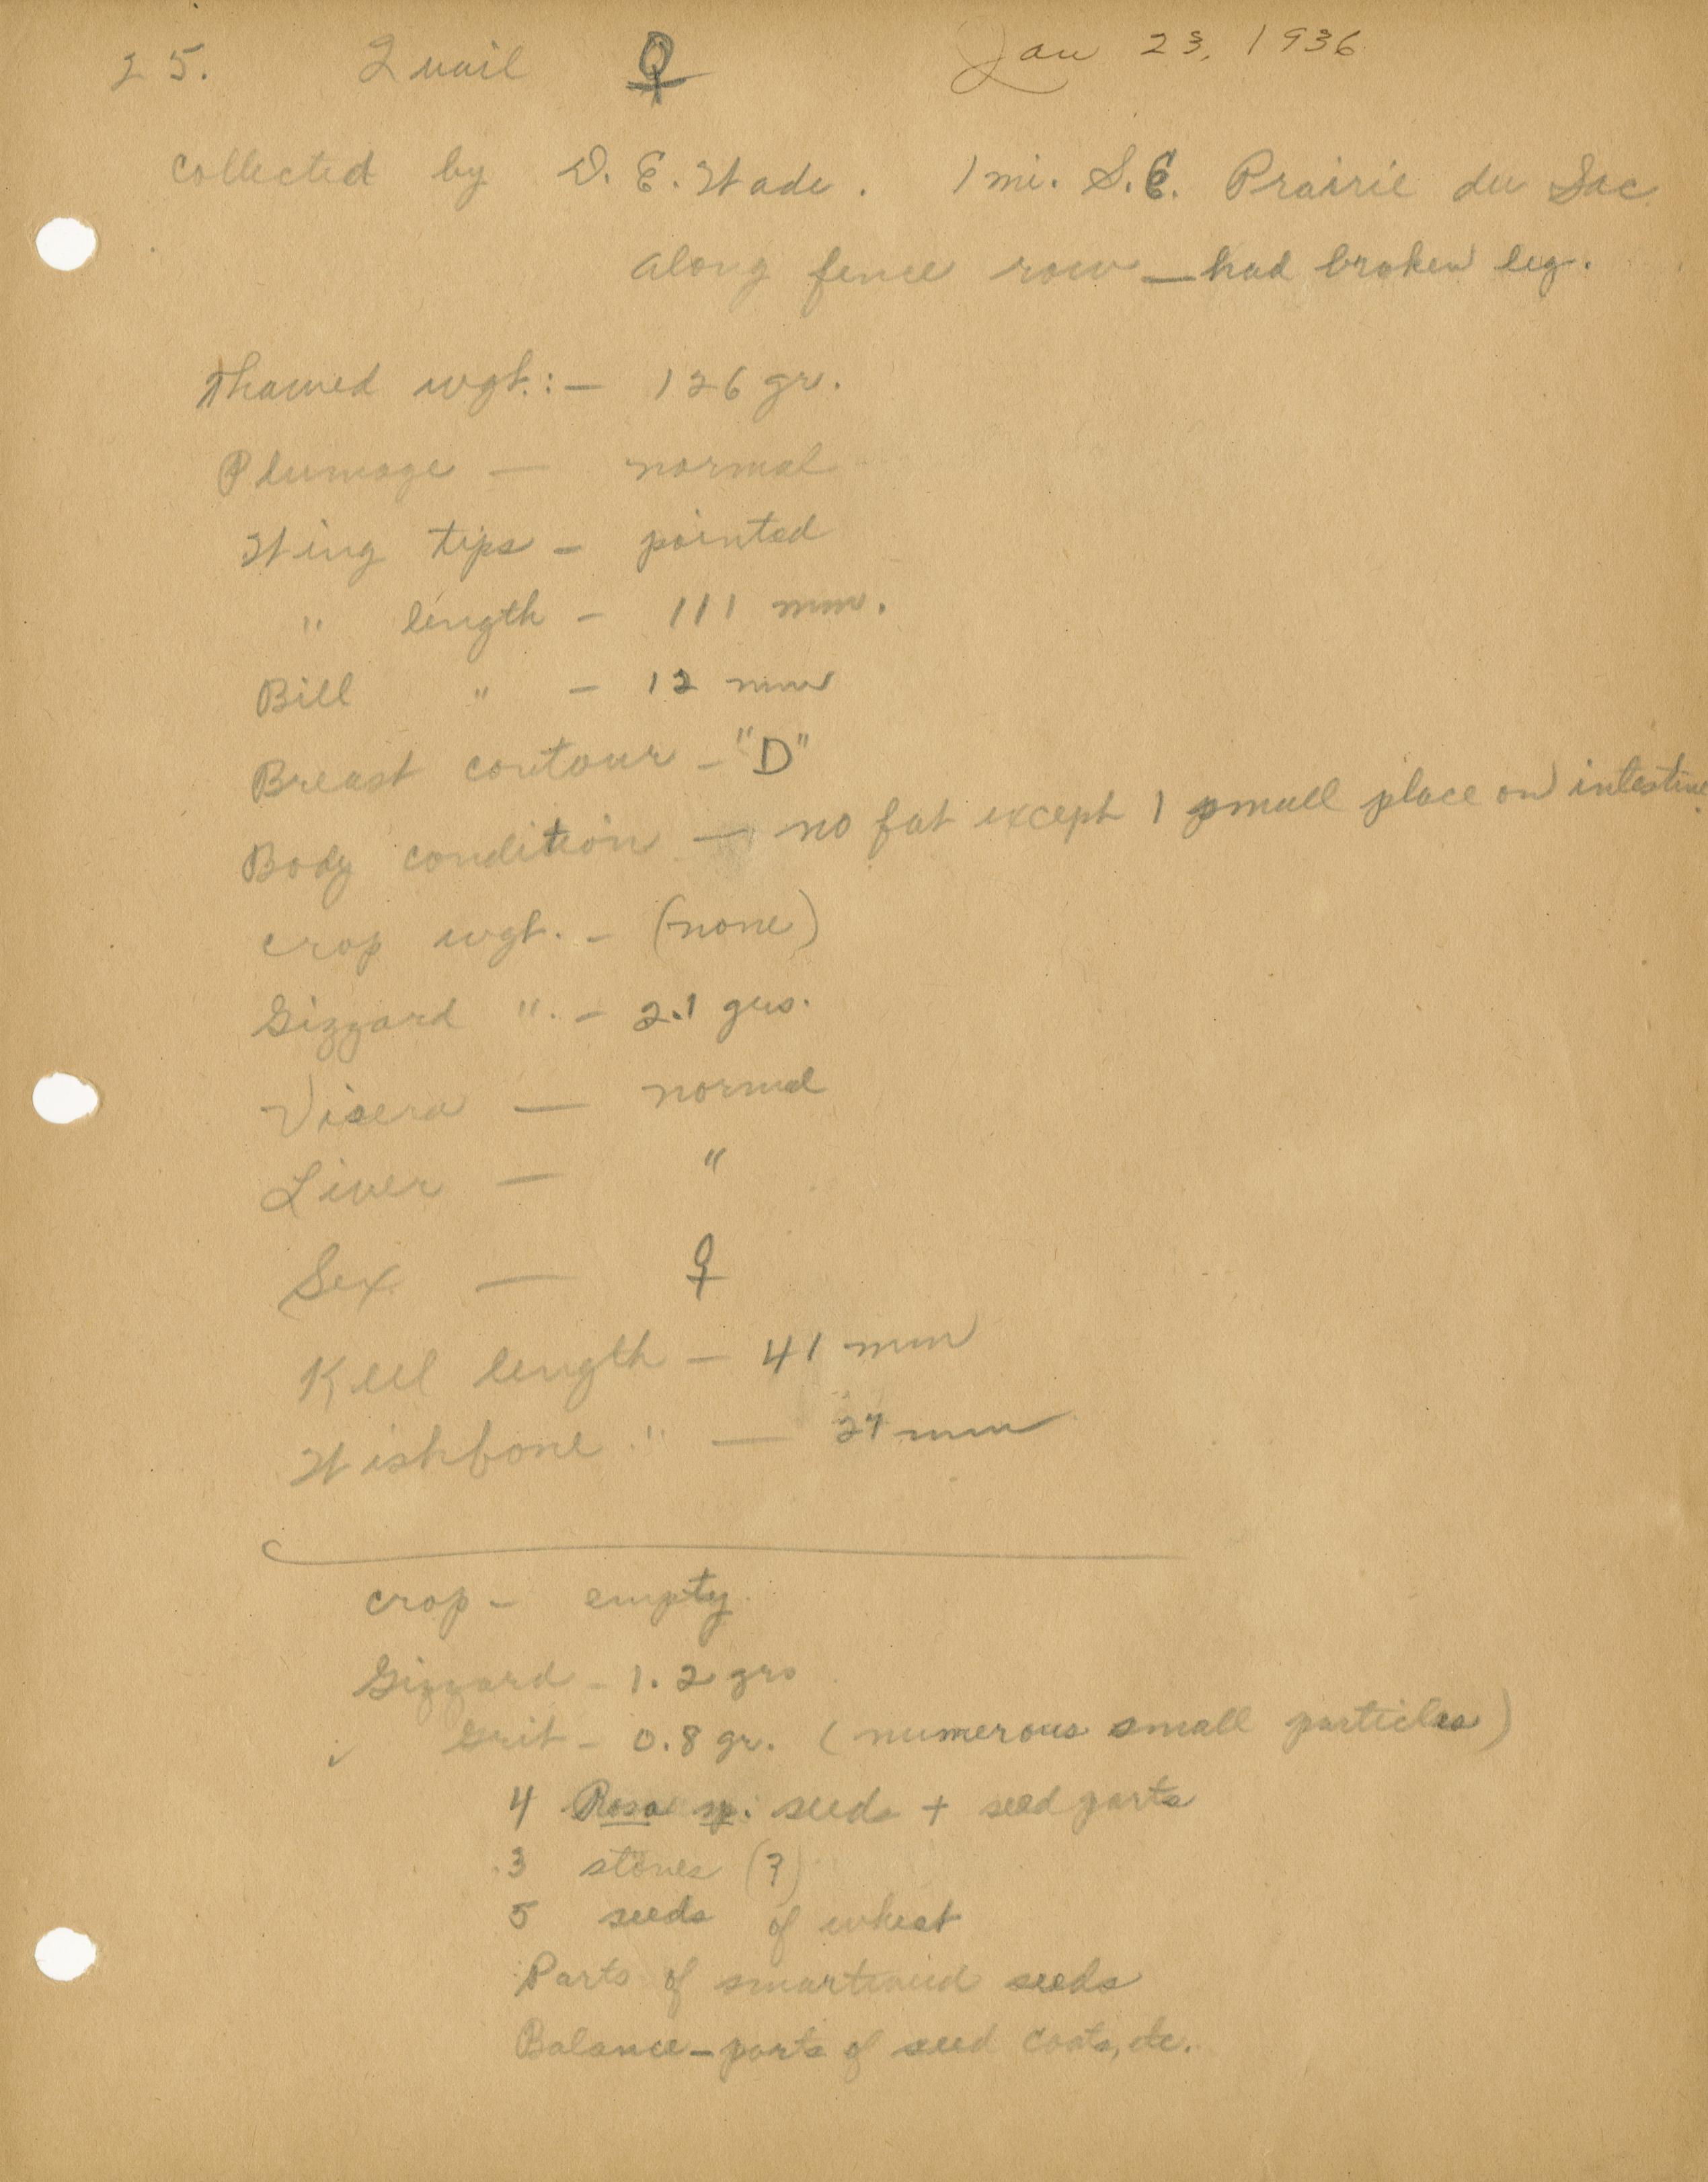 25. Quail ♀ Jan 23, 1936
collected by D. E. Wade. 1 mi. S.E. Prairie du Sac
along fence row — had broken leg.
Thawed wgt.: — 126 gr.
Plumage — normal
Wing tips — pointed
" length — 111 mm.
Bill " — 12 mm
Breast contour — "D"
Body condition — no fat except 1 small place on intestine.
crop wgt. — (none)
Gizzard ". — 2.1 grs.
Visera — normal
Liver — "
Sex — ♀
Keel length — 41 mm
Wishbone " — 27 mm
crop — empty
Gizzard — 1.2 grs
✓ Grit — 0.8 gr. (numerous small particles)
4 Rosa sp. seeds + seed parts
3 stones (?)
5 seeds of wheat
Parts of smartweed seeds
Balance — parts of seed coats, etc.